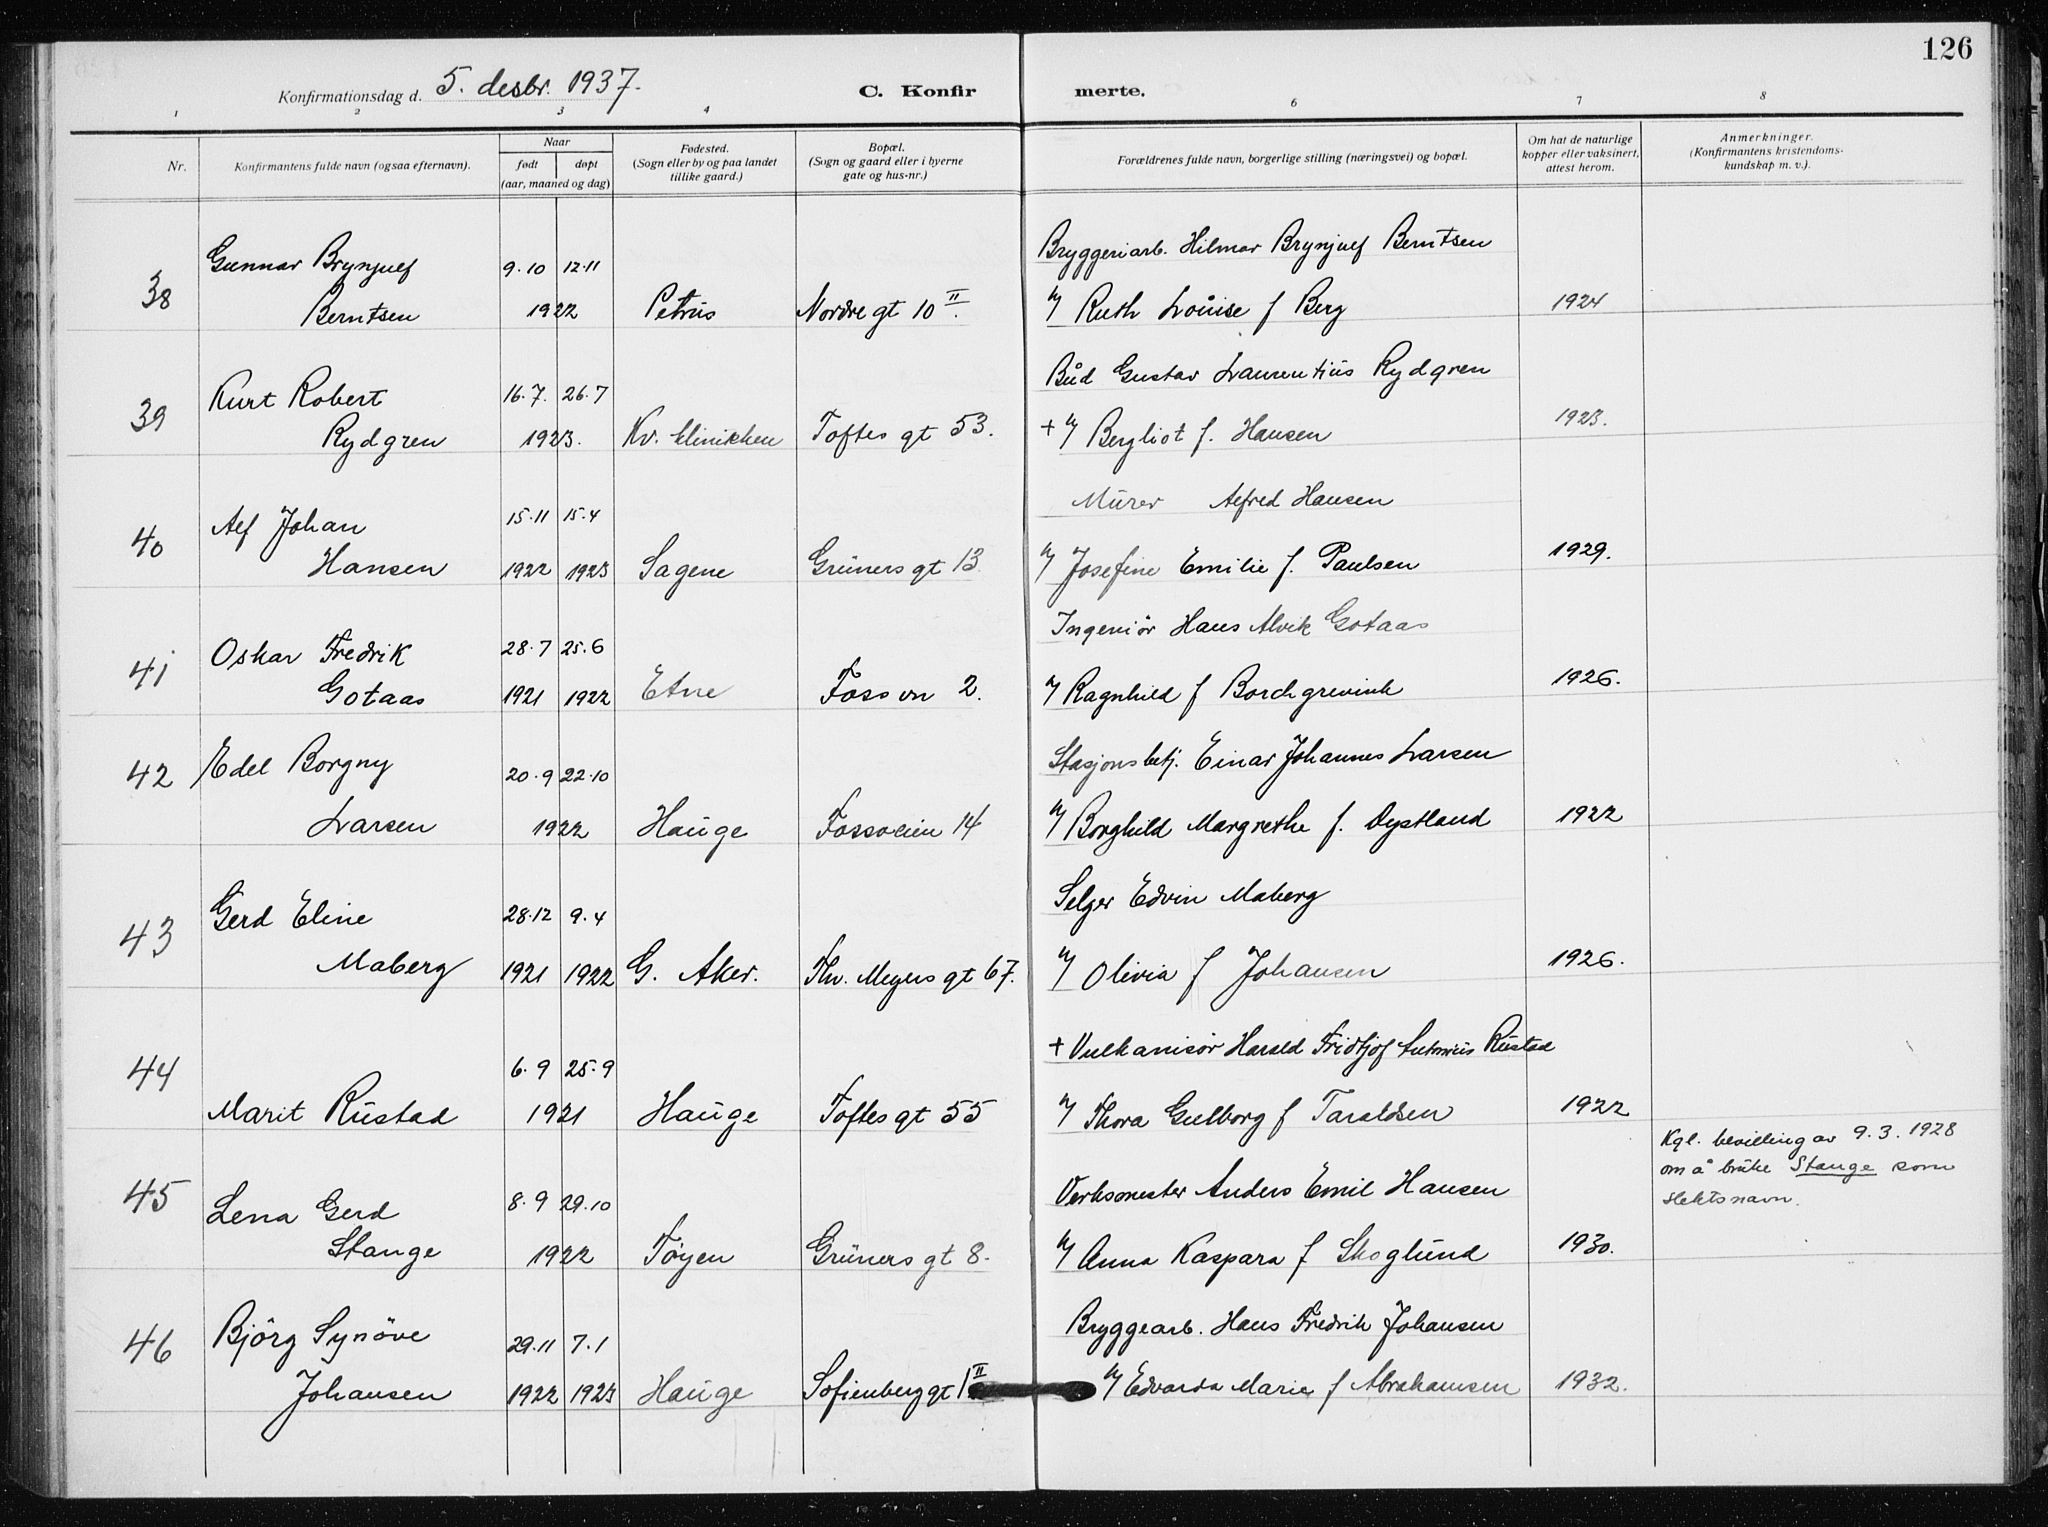 126
Konfirmationsdag d. 5. desbr. 1937.
C. Konfirmerte.
1 2 3 4 6 7 8
Nr.
Konfirmantens fulde navn (ogsaa efternavn).
Naar
født døpt
(aar, maaned og dag)
Fødested.
(Sogn eller by og paa landet
tillike gaard.)
Bopæl.
(Sogn og gaard eller i byerne
gate og hus-nr.)
Forældrenes fulde navn, borgerlige stilling (næringsvei) og bopæl.
Om hat de naturlige
kopper eller vaksinert,
attest herom.
Anmerkninger.
(Konfirmantens kristendoms-
kundskap m. v.).
Gunnar Brynjulf 9.10 12.11 Bryggeriarb. Hilmar Brynjulf Berntsen
38 Berntsen 1922 Petrus Nordre gt 10 II. m/ Ruth Louise f Berg 1924
Kurt Robert 16.7. 26.7 Bud Gustav Laurentius Rydgren
39 Rydgren 1923. Kv. klinikken Toftes gt 53. + m/ Bergliot f. Hansen 1923.
Alf Johan 15.11 15.4 Murer Alfred Hansen
40 Hansen 1922 1923 Sagene Grüners gt 13 m/ Josefine Emilie f. Paulsen 1929.
Oskar Fredrik 28.7 25.6 Ingeniör Hans Alvik Gotaas
41 Gotaas 1921 1922 Etne Fossvn 2. m/ Ragnhild f Borchgrevink 1926.
42 Edel Borgny 20.9 22.10 Stasjonsbetj. Einar Johannes Larsen
Larsen 1922 Hauge Fossveien 14 m/ Borghild Margrethe f. Dystland 1922
Gerd Eline 28.12 9.4 Selger Edvin Maberg
43 Maberg 1921 1922 G. Aker. Thv. Meyers gt 67. m/ Olivia f Johansen 1926.
44 6.9 25.9 + Vulkanisör Harald Fridtjof Antonius Rustad
Marit Rustad 1921 Hauge Toftes gt 55 m/ Thora Gulborg f Taraldsen 1922
Kgl. bevilling av 9.3.1928
om å bruke Stange som
slektsnavn.
45 Lena Gerd 8.9 29.10 Verksmester Anders Emil Hansen
Stange 1922 Töyen Grüners gt 8. m/ Anna Kaspara f Skoglund 1930.
46 Björg Synöve 29.11 7.1 Bryggearb. Hans Fredrik Johansen
Johansen 1922 1923 Hauge Sofienberggt 1 II m/ Edvarda Marie f Abrahamsen 1932.